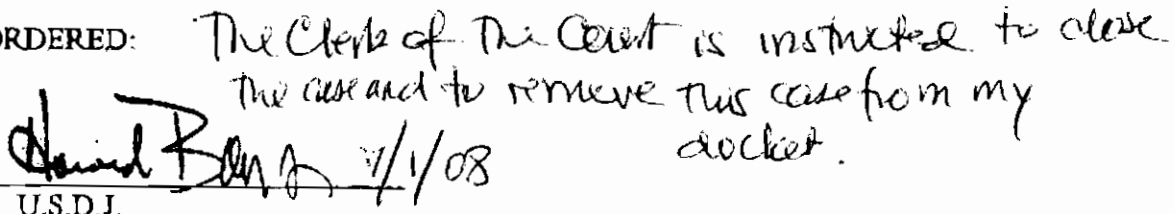 ORDERED: The Clerk of The Court is instructed to close
the case and to remove this case from my
docket.
7/1/08
U.S.D.J.